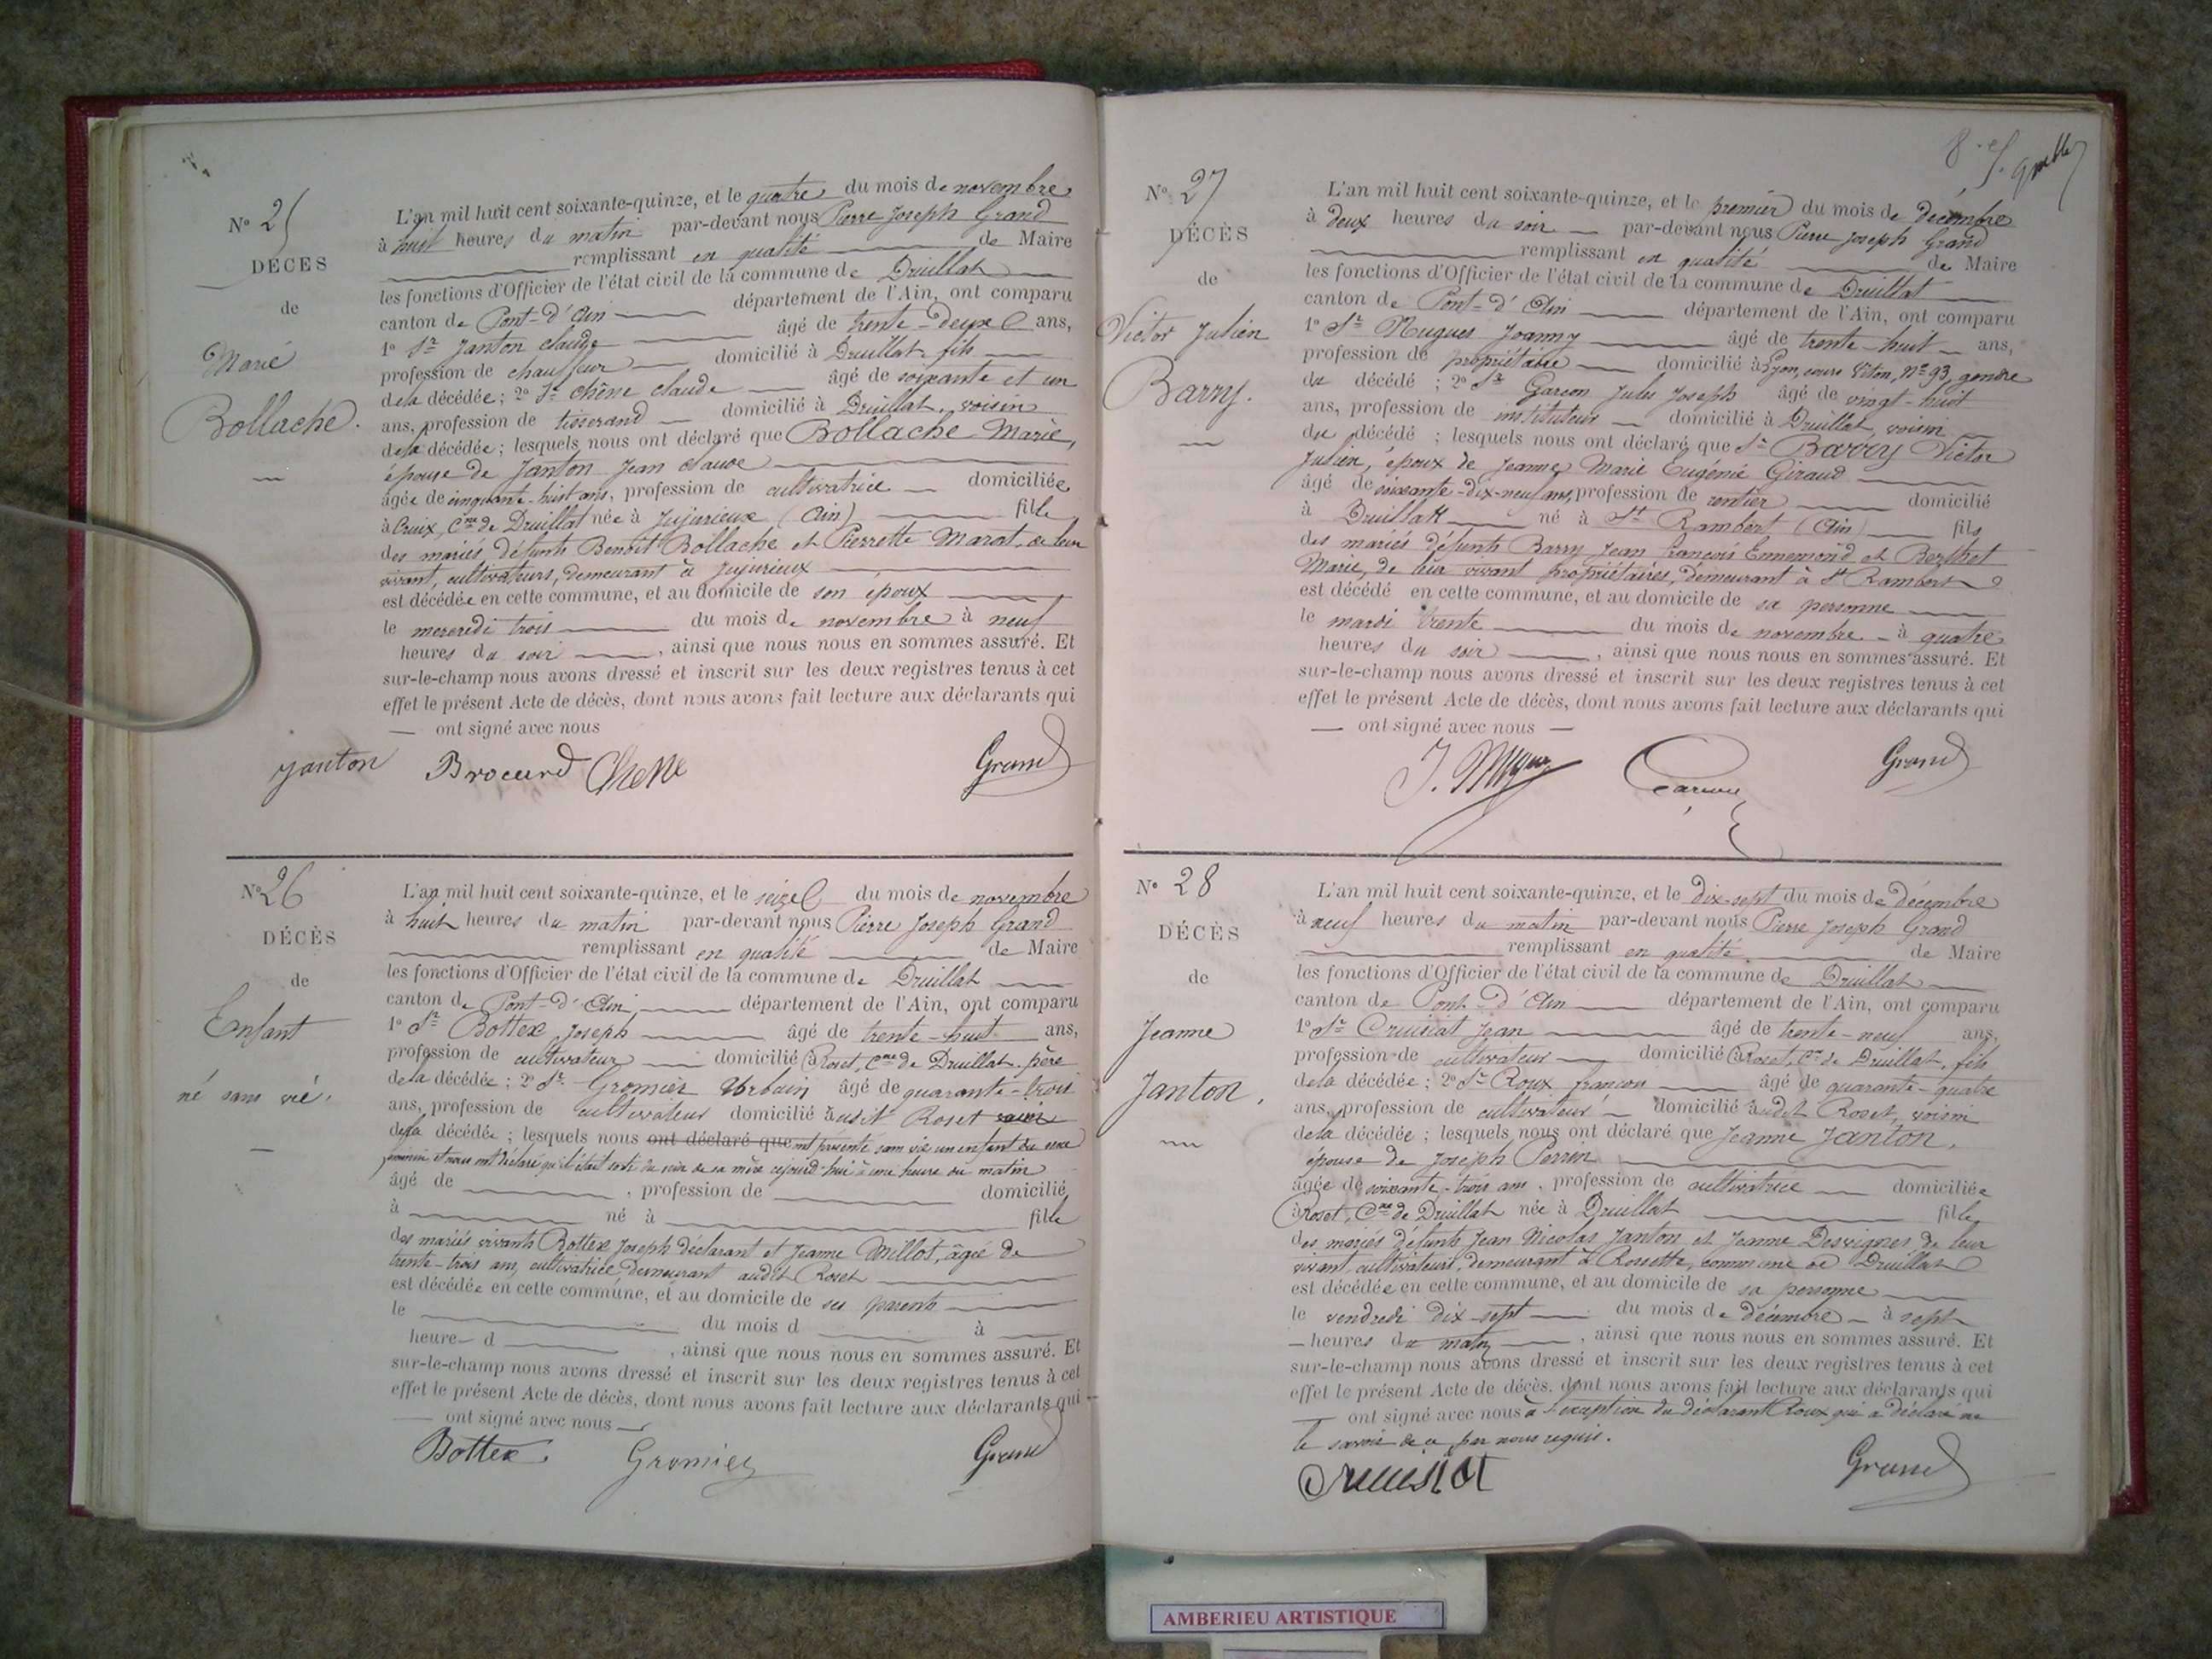 N° 25
DÉCÈS
de
Marie
Bollache.
L'an mil huit cent soixante-quinze, et le quatre du mois de novembre
à huit heures du matin par-devant nous Pierre Joseph Grand
remplissant en qualité de Maire
les fonctions d'Officier de l'état civil de la commune de Druillat
canton de Pont-d'Ain département de l'Ain, ont comparu
1° Sr Janton Claude âgé de trente-deux ans,
profession de chauffeur domicilié à Druillat, fils
de la décédée; 2° Sr Chêne Claude âgé de soixante et un
ans, profession de tisserand domicilié à Druillat, voisin
de la décédée; lesquels nous ont déclaré que Bollache Marie,
épouse de Janton Jean Claude
âgée de cinquante-huit ans, profession de cultivatrice domiciliée
à Cruix, Cne de Druillat née à Jujurieux (Ain) fille
des mariés défunts Benoit Bollache et Pierrette Marat, de leur
vivant, cultivateurs, demeurant à Jujurieux
est décédée en cette commune, et au domicile de son époux
le mercredi trois du mois de novembre à neuf
heures du soir, ainsi que nous nous en sommes assuré. Et
sur-le-champ nous avons dressé et inscrit sur les deux registres tenus à cet
effet le présent Acte de décès, dont nous avons fait lecture aux déclarants qui
ont signé avec nous
Janton Brocard Chene Grand
N° 26
DÉCÈS
de
Enfant
né sans vie.
L'an mil huit cent soixante-quinze, et le seize du mois de novembre
à huit heures du matin par-devant nous Pierre Joseph Grand
remplissant en qualité de Maire
les fonctions d'Officier de l'état civil de la commune de Druillat
canton de Pont-d'Ain, département de l'Ain, ont comparu
1° Sr Bottex Joseph âgé de trente-huit ans,
profession de cultivateur domicilié à Roset, Cne de Druillat, père
de la décédée; 2° Sr Gromier Urbain âgé de quarante-trois
ans, profession de cultivateur domicilié audit Roset voisin
de la décédée; lesquels nous ont déclaré que ont présenté sans vie un enfant du sexe
féminin et nous ont déclaré qu'il était sorti du sein de sa mère cejourd'hui à une heure du matin
âgé de , profession de domicilié
à né à fille
des mariés vivants Bottex Joseph déclarant et Jeanne Millot, âgée de
trente-trois ans, cultivatrice, demeurant audit Roset
est décédée en cette commune, et au domicile de ses parents
le du mois d à
heure d , ainsi que nous nous en sommes assuré. Et
sur-le-champ nous avons dressé et inscrit sur les deux registres tenus à cet
effet le présent Acte de décès, dont nous avons fait lecture aux déclarants qui
ont signé avec nous
Bottex. Gromier Grand
N° 27
DÉCÈS
de
Victor Julien
Barry.
L'an mil huit cent soixante-quinze, et le premier du mois de décembre
à deux heures du soir par-devant nous Pierre Joseph Grand
remplissant en qualité de Maire
les fonctions d'Officier de l'état civil de la commune de Druillat
canton de Pont-d'Ain département de l'Ain, ont comparu
1° Sr Mugues Joanny âgé de trente-huit ans,
profession de propriétaire domicilié à Lyon, cours Viton, N° 93, gendre
du décédé; 2° Sr Garçon Jules Joseph âgé de vingt-huit
ans, profession de instituteur domicilié à Druillat, voisin
du décédé; lesquels nous ont déclaré que Sr Barry Victor
Julien, époux de Jeanne Marie Eugénie Giraud
âgé de soixante-dix-neuf ans, profession de rentier domicilié
à Druillat né à St Rambert (Ain) fils
des mariés défunts Barry Jean François Ennemond et Berthet
Marie, de leur vivant propriétaires, demeurant à St Rambert
est décédé en cette commune, et au domicile de sa personne
le mardi trente du mois de novembre à quatre
heures du soir, ainsi que nous nous en sommes assuré. Et
sur-le-champ nous avons dressé et inscrit sur les deux registres tenus à cet
effet le présent Acte de décès, dont nous avons fait lecture aux déclarants qui
ont signé avec nous
Garçon Grand
N° 28
DÉCÈS
de
Jeanne
Janton.
L'an mil huit cent soixante-quinze, et le dix-sept du mois de décembre
à neuf heures du matin par-devant nous Pierre Joseph Grand
remplissant en qualité de Maire
les fonctions d'Officier de l'état civil de la commune de Druillat
canton de Pont-d'Ain département de l'Ain, ont comparu
1° Sr Cruisiat Jean âgé de trente-neuf ans,
profession de cultivateur domicilié à Roset, Cne de Druillat, fils
de la décédée; 2° Sr Roux françois âgé de quarante-quatre
ans, profession de cultivateur domicilié audit Roset, voisin
de la décédée; lesquels nous ont déclaré que Jeanne Janton,
épouse de Joseph Perrin
âgée de soixante-trois ans, profession de cultivatrice domiciliée
à Roset, Cne de Druillat née à Druillat fille
des mariés défunts Jean Nicolas Janton et Jeanne Desvignes de leur
vivant cultivateurs, demeurant à Rossette, commune de Druillat
est décédée en cette commune, et au domicile de sa personne
le vendredi dix-sept du mois de décembre à sept
heures du matin, ainsi que nous nous en sommes assuré. Et
sur-le-champ nous avons dressé et inscrit sur les deux registres tenus à cet
effet le présent Acte de décès, dont nous avons fait lecture aux déclarants qui
ont signé avec nous à l'exception du déclarant Roux qui a déclaré ne
le savoir de ce par nous requis.
Cruisiat Grand
AMBERIEU ARTISTIQUE